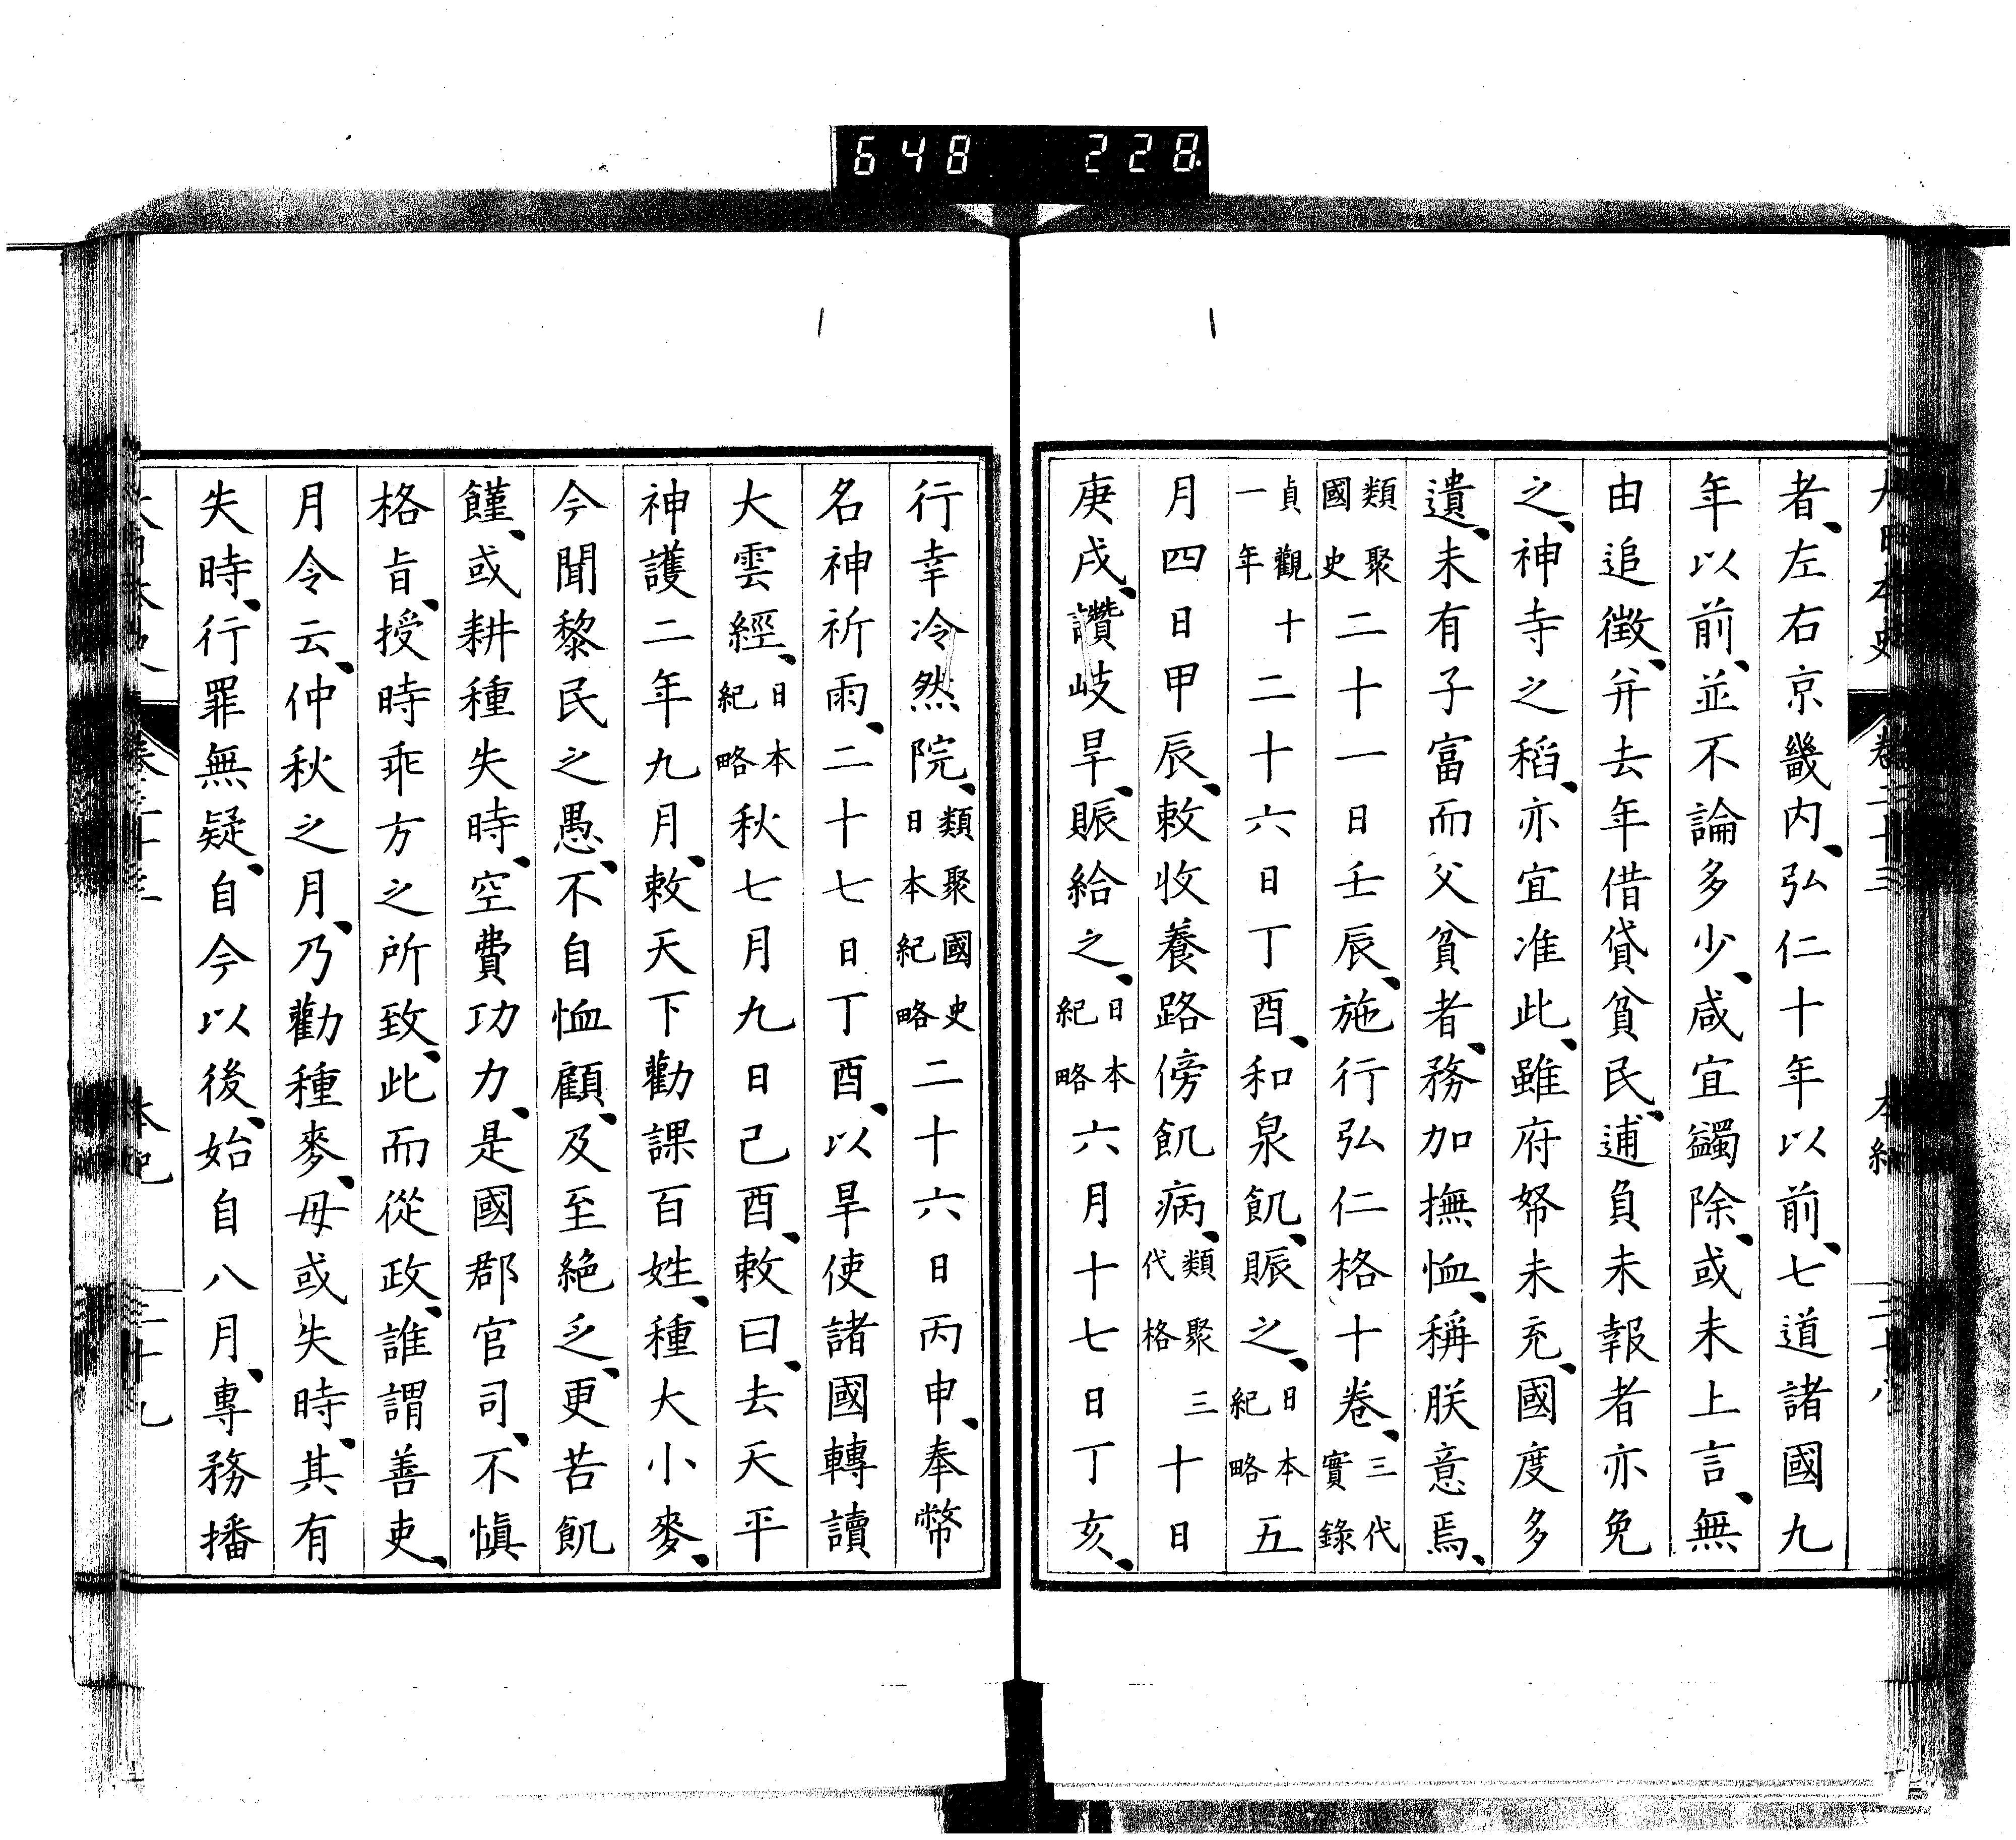 648 228
大日本史 卷二十三 本紀 三十八
者、左右京畿內、弘仁十年以前、七道諸國九
年以前、並不論多少、咸宜蠲除、或未上言、無
由追徵、幷去年借貸貧民、逋負未報者亦免
之、神寺之稻、亦宜准此、雖府帑未充、國度多
遺、未有子富而父貧者、務加撫恤、稱朕意焉、
類聚國史二十一日壬辰、施行弘仁格十卷、三代實錄
貞觀十一年十二二十六日丁酉、和泉飢、賑之、日本紀略五
月四日甲辰、敕收養路傍飢病、類聚三代格十日
庚戌、讚岐旱、賑給之、日本紀略六月十七日丁亥、
行幸冷然院、類聚國史日本紀略二十六日丙申、奉幣
名神祈雨、二十七日丁酉、以旱使諸國轉讀
大雲經、日本紀略秋七月九日己酉、敕曰、去天平
神護二年九月、敕天下勸課百姓、種大小麥、
今聞黎民之愚、不自恤顧、及至絕乏、更苦飢
饉、或耕種失時、空費功力、是國郡官司、不愼
格旨、授時乖方之所致、此而從政、誰謂善吏、
月令云、仲秋之月、乃勸種麥、毋或失時、其有
失時、行罪無疑、自今以後、始自八月、專務播
大日本史 卷二十三 本紀 三十九